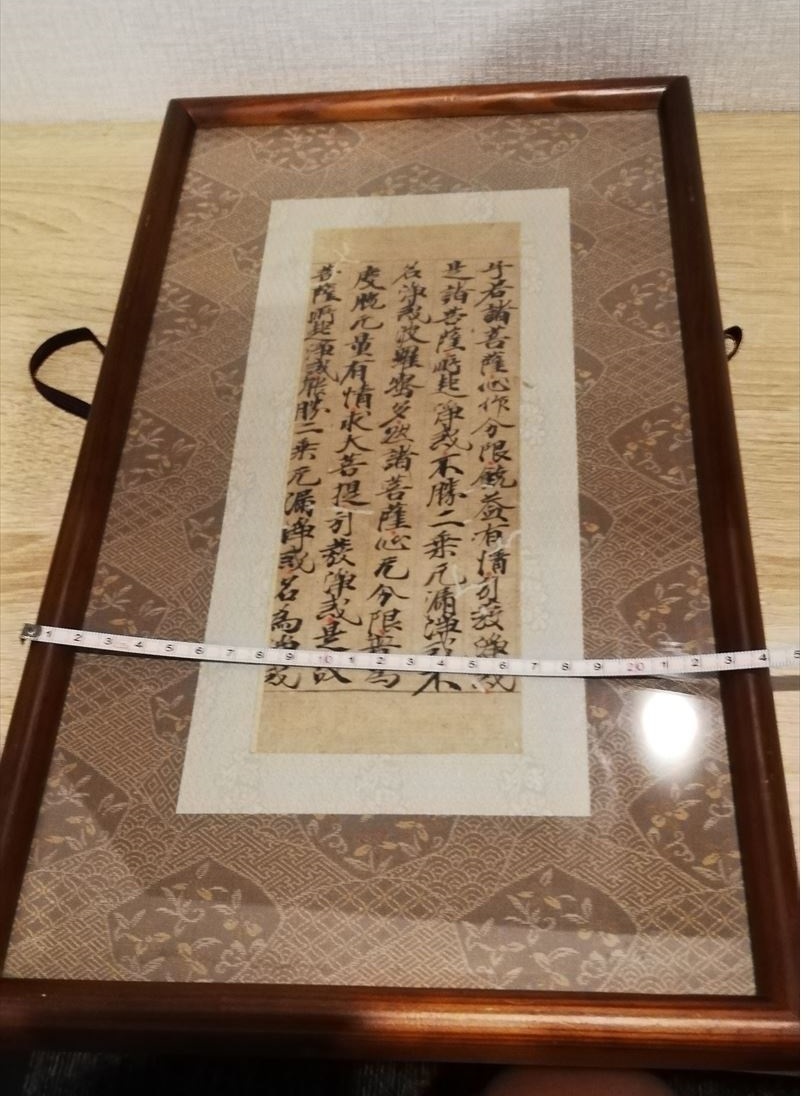 子若諸菩薩心作分限饒益有情引發淨戒
是諸菩薩所起淨戒不勝二乘无漏淨戒不
名淨戒波羅蜜多然諸菩薩心无分限普為
度脫无量有情求大菩提引發淨戒是故
菩薩所起淨戒能勝二乘无漏淨戒名為淨戒
1 2 3 4 5 6 7 8 9 10 1 2 3 4 5 6 7 8 9 20 1 2 3 4 5